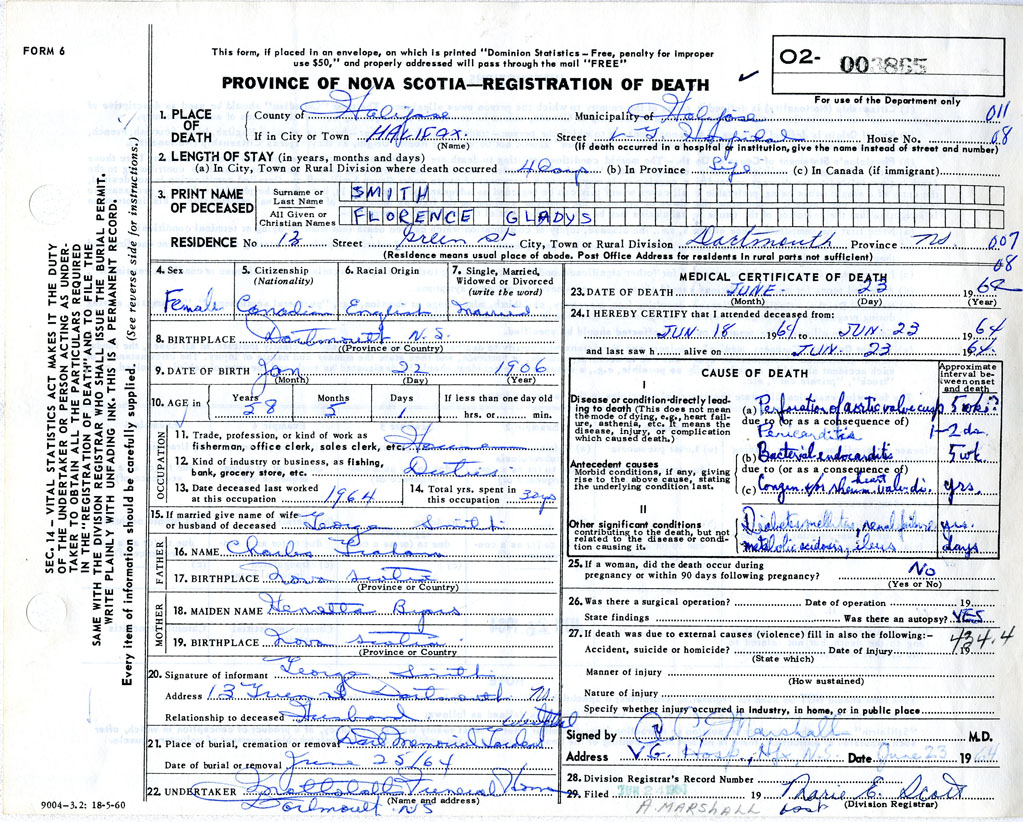 FORM 6
This form, if placed in an envelope, on which is printed "Dominion Statistics – Free, penalty for improper
use $50," and properly addressed will pass through the mail "FREE"
PROVINCE OF NOVA SCOTIA—REGISTRATION OF DEATH
O2- 003865
For use of the Department only
SEC. 14 – VITAL STATISTICS ACT MAKES IT THE DUTY
OF THE UNDERTAKER OR PERSON ACTING AS UNDER-
TAKER TO OBTAIN ALL THE PARTICULARS REQUIRED
IN THE "REGISTRATION OF DEATH" AND TO FILE THE
SAME WITH THE DIVISION REGISTRAR WHO SHALL ISSUE THE BURIAL PERMIT.
WRITE PLAINLY WITH UNFADING INK. THIS IS A PERMANENT RECORD.
Every item of information should be carefully supplied. (See reverse side for instructions.)
1. PLACE OF DEATH
County of Halifax Municipality of Halifax 011
If in City or Town HALIFAX. Street V. G. Hospital House No. 08
(Name) (If death occurred in a hospital or institution, give the name instead of street and number)
2. LENGTH OF STAY (in years, months and days)
(a) In City, Town or Rural Division where death occurred 4 days (b) In Province Life (c) In Canada (if immigrant)
3. PRINT NAME OF DECEASED
Surname or Last Name SMITH
All Given or Christian Names FLORENCE GLADYS
RESIDENCE No 13 Street Green St City, Town or Rural Division Dartmouth Province NS 007
(Residence means usual place of abode. Post Office Address for residents in rural parts not sufficient) 08
4. Sex Female
5. Citizenship (Nationality) Canadian
6. Racial Origin English
7. Single, Married, Widowed or Divorced (write the word) Married
8. BIRTHPLACE Dartmouth N.S.
(Province or Country)
9. DATE OF BIRTH Jan 22 1906
(Month) (Day) (Year)
10. AGE in Years 58 Months 5 Days 1 If less than one day old hrs. or min.
OCCUPATION
11. Trade, profession, or kind of work as
fisherman, office clerk, sales clerk, etc. House
12. Kind of industry or business, as fishing,
bank, grocery store, etc. Duties
13. Date deceased last worked
at this occupation 1964
14. Total yrs. spent in
this occupation
15. If married give name of wife
or husband of deceased George Smith
FATHER
16. NAME Charles Graham
17. BIRTHPLACE Nova Scotia
(Province or Country)
MOTHER
18. MAIDEN NAME Henretta
19. BIRTHPLACE Nova Scotia
(Province or Country)
20. Signature of informant George Smith
Address 13 Green St Dartmouth NS.
Relationship to deceased Husband
21. Place of burial, cremation or removal Dart Memorial Gardens Westphal
Date of burial or removal June 25/64
22. UNDERTAKER Funeral Home
(Name and address)
Dartmouth NS
9004–3.2: 18-5-60
MEDICAL CERTIFICATE OF DEATH
23. DATE OF DEATH JUNE 23 1964
(Month) (Day) (Year)
24. I HEREBY CERTIFY that I attended deceased from:
JUN 18 1964 to JUN 23 1964
and last saw h alive on JUN 23 1964.
CAUSE OF DEATH
Approximate interval between onset and death
I
Disease or condition directly lead-
ing to death (This does not mean
the mode of dying, e.g., heart fail-
ure, asthenia, etc. It means the
disease, injury, or complication
which caused death.)
(a) Perforation of aortic valve cusp 5 wks?
due to (or as a consequence of)
Pericarditis 1-2 ds.
Antecedent causes
Morbid conditions, if any, giving
rise to the above cause, stating
the underlying condition last.
(b) Bacterial endocarditis 5 wk.
due to (or as a consequence of)
(c) Congen. or rheum. heart valv. di. yrs.
II
Other significant conditions
contributing to the death, but not
related to the disease or condi-
tion causing it.
Diabetes mellitus, renal failure yrs.
metabolic acidosis, ileus days
25. If a woman, did the death occur during
pregnancy or within 90 days following pregnancy? No
(Yes or No)
26. Was there a surgical operation? Date of operation 19
State findings Was there an autopsy? YES
27. If death was due to external causes (violence) fill in also the following:–
Accident, suicide or homicide? Date of injury 19
(State which)
434.4
Manner of injury
(How sustained)
Nature of injury
Specify whether injury occurred in industry, in home, or in public place
Signed by Marshall M.D.
Address V.G. Hosp, Hfx N.S. Date June 23 1964
28. Division Registrar's Record Number
29. Filed 19 Marie E. Scott
(Division Registrar)
A. MARSHALL